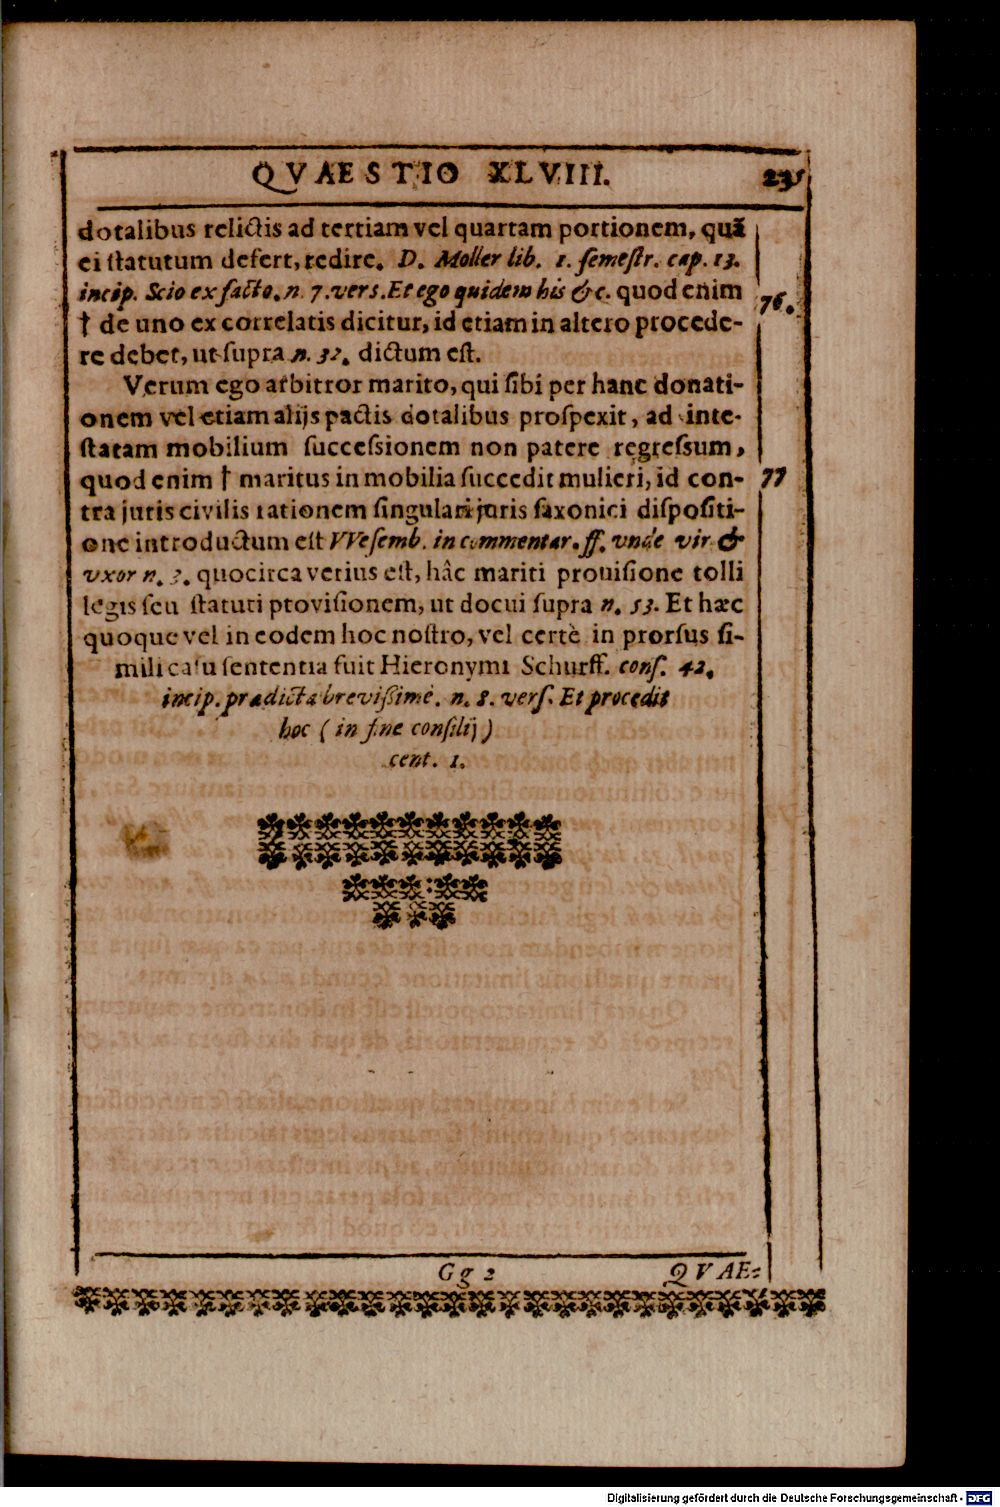 QVAESTIO XLVIII. 235
dotalibus relictis ad tertiam vel quartam portionem, quã
ei ſtatutum defert, redire. D. Moller lib. 1. ſemeſtr. cap. 13.
incip. Scio ex facto. n. 7. verſ. Et ego quidem his &c. quod enim
76.
† de uno ex correlatis dicitur, id etiam in altero procede-
re debet, ut ſupra n. 32. dictum eſt.
Verum ego arbitror marito, qui ſibi per hanc donati-
onem vel etiam alijs pactis dotalibus proſpexit, ad inte-
ſtatam mobilium ſucceſsionem non patere regreſsum,
quod enim † maritus in mobilia ſuccedit mulieri, id con- 77
tra juris civilis rationem ſingulari juris ſaxonici diſpoſiti-
one introductum eſt VVeſemb. in commentar. ff. vnde vir &
vxor n. 3. quocirca verius eſt, hâc mariti prouiſione tolli
legis ſeu ſtatuti proviſionem, ut docui ſupra n. 53. Et hæc
quoque vel in eodem hoc noſtro, vel certè in prorſus ſi-
mili caſu ſententia fuit Hieronymi Schurff. conſ. 42.
incip. prædicta breviſſimè. n. 8. verſ. Et procedit
hoc (in fine conſilij)
cent. 1.
Gg 2 QVAE-
Digitalisierung gefördert durch die Deutsche Forschungsgemeinschaft - DFG